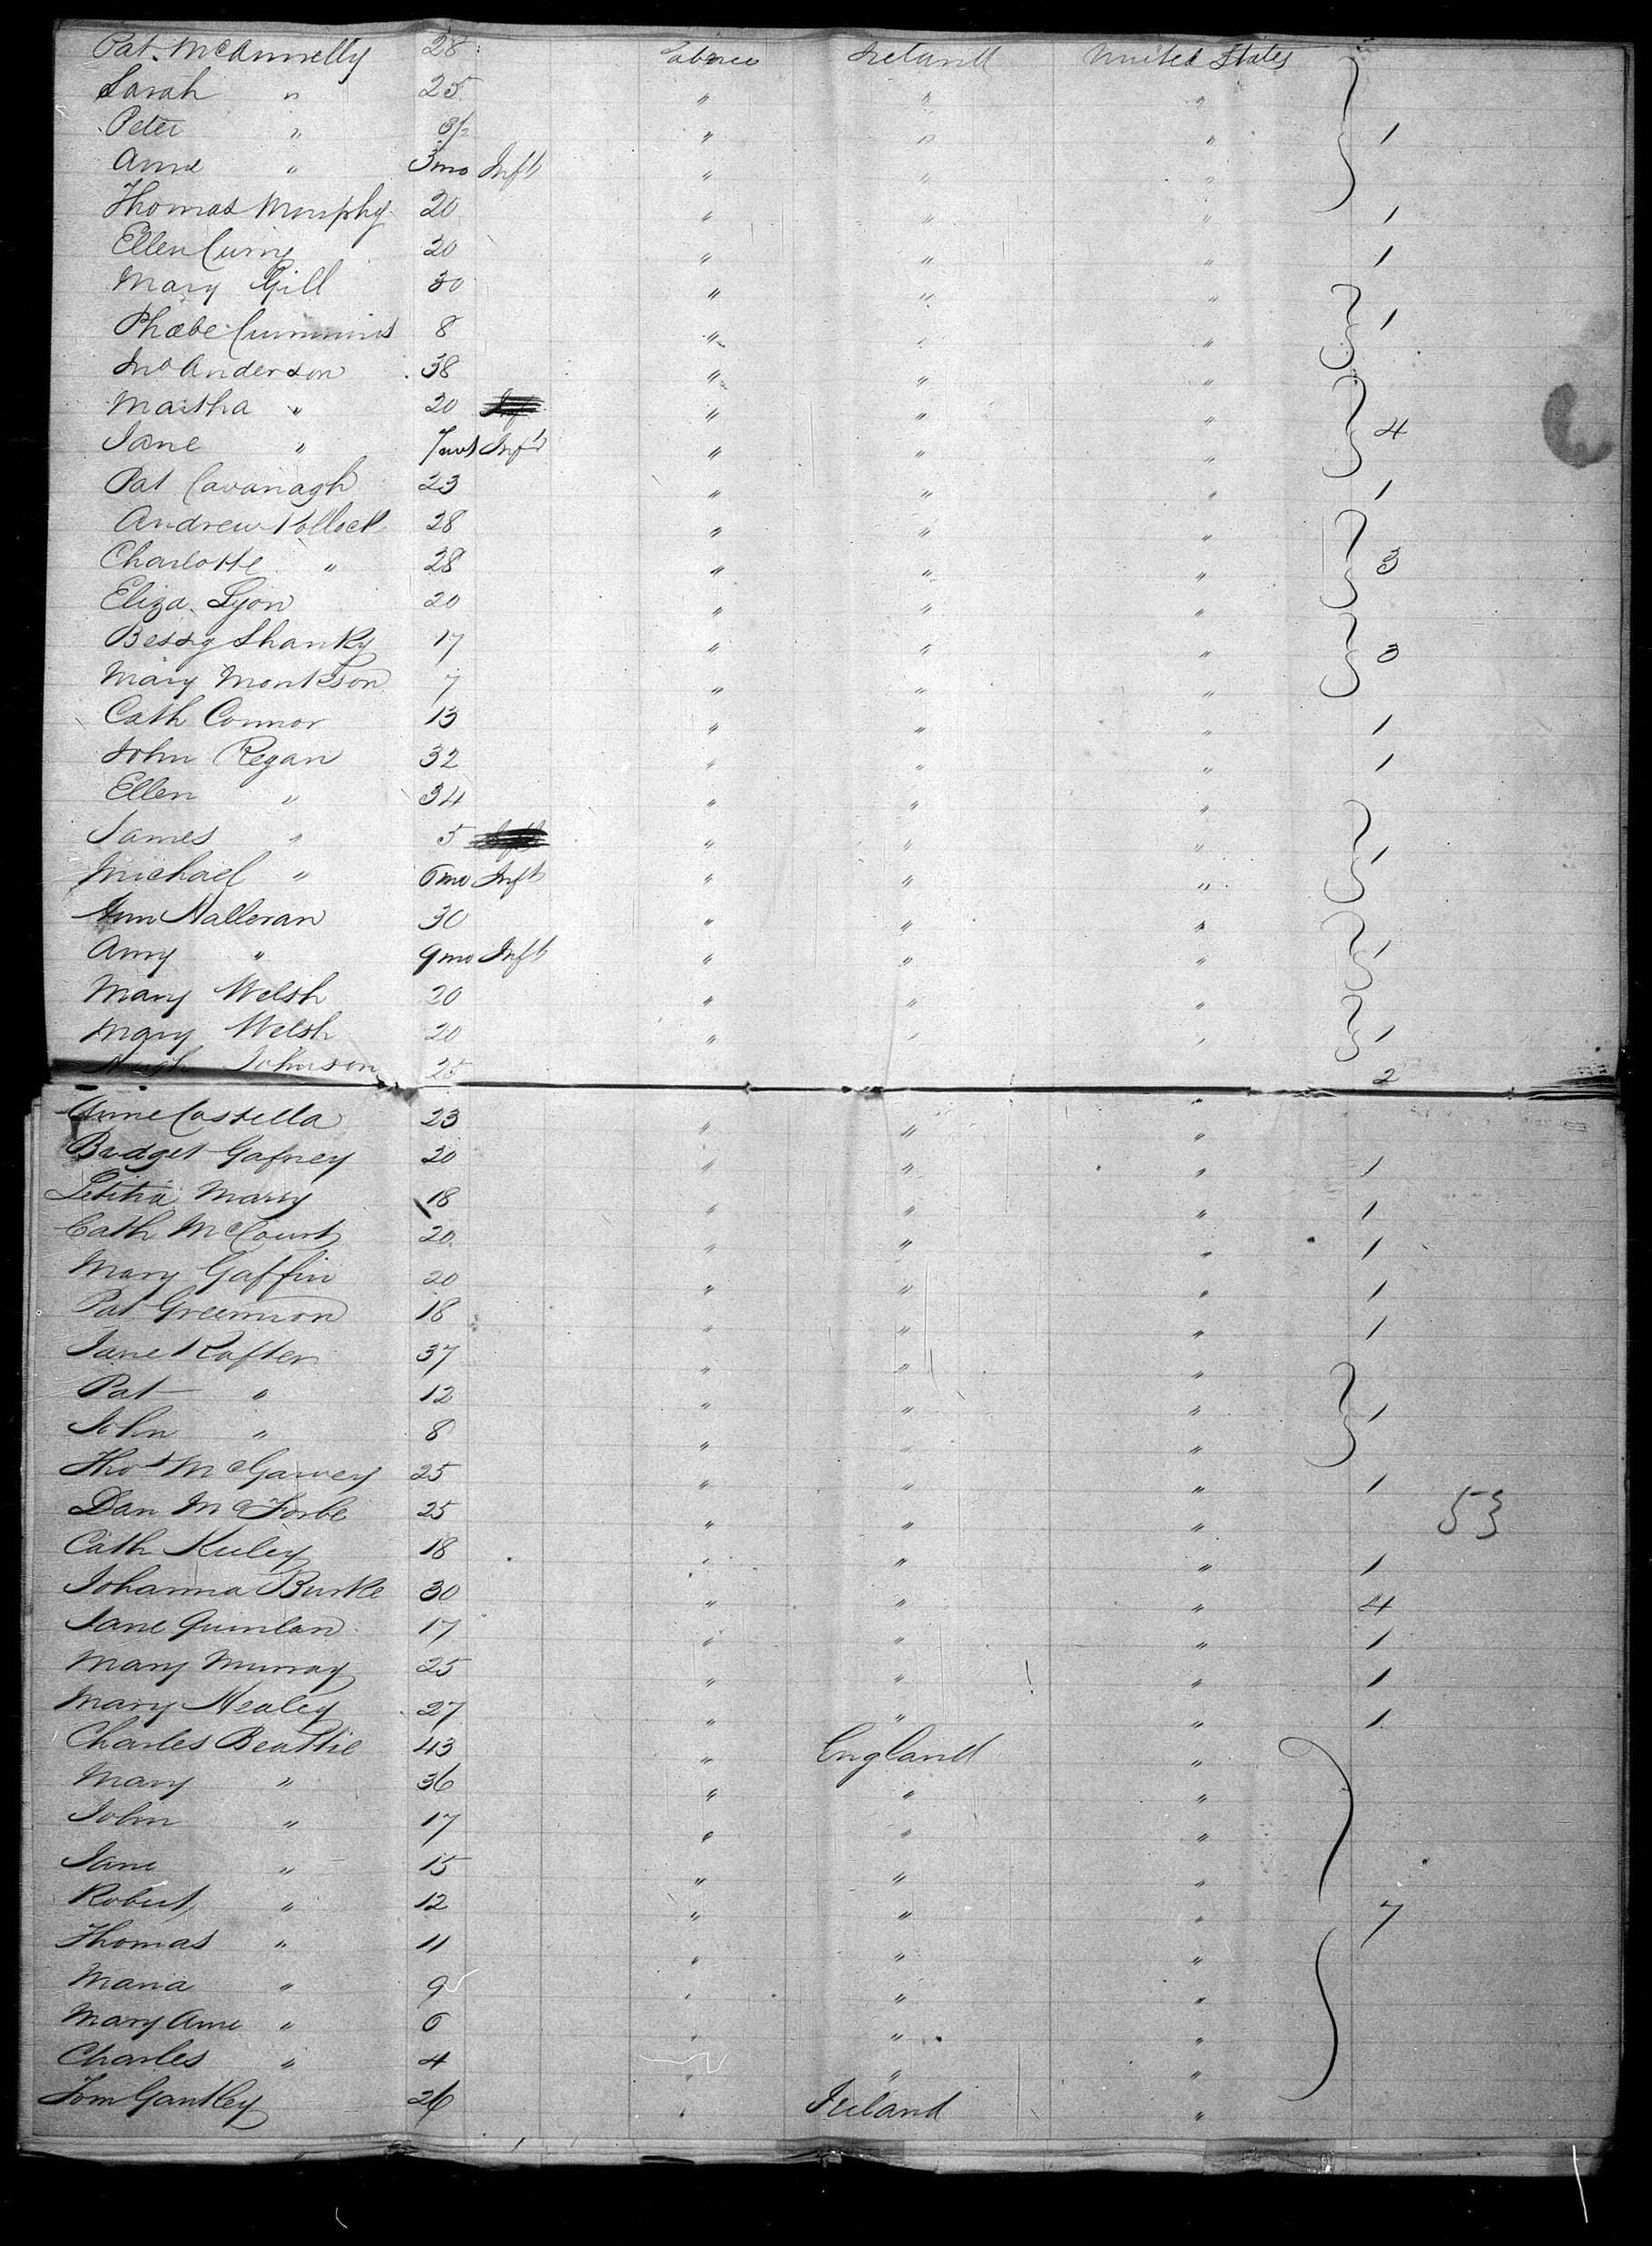 Pat McAnnelly 28 Laborer Ireland United States
Sarah " 25 " " "
Peter " 3/2 " " " 1
Anne " 3mo Inft " " "
Thomas Murphy 20 " " " 1
Ellen Curry 20 " " " 1
Mary Gill 30 " " " 1
Phœbe Cummins 8 " " "
Jno Anderson 38 " " "
Martha " 20 " " " 4
Jane " 7mos Inft " " "
Pat Cavanagh 23 " " " 1
Andrew Pollock 28 " " "
Charlotte " 28 " " " 3
Eliza Lyon 20 " " "
Bessy Shanky 17 " " " 3
Mary Monkson 7 " " "
Cath Connor 13 " " " 1
John Regan 32 " " " 1
Ellen " 34 " " "
James " 5 " " " 1
Michael " 6mo Inft " " "
Ann Halloran 30 " " "
Amy " 9mo Inft " " " 1
Mary Welsh 20 " " "
Mary Welsh 20 " " " 1
Hugh Johnson 25 2
Anne Costella 23 " " "
Bridget Gafney 20 " " " 1
Letitia Marry 18 " " " 1
Cath McCourt 20 " " " 1
Mary Gaffin 20 " " " 1
Pat Greennon 18 " " " 1
Jane Rafter 37 " " "
Pat " 12 " " " 1
John " 8 " " "
Thos McGarvey 25 " " " 1
Dan McForbe 25 " " " 53
Cath Kuley 18 " " " 1
Johanna Burke 30 " " " 4
Jane Quinlan 17 " " " 1
Mary Murray 25 " " " 1
Mary Healey 27 " " " 1
Charles Beattie 43 " England "
Mary " 36 " " "
John " 17 " " "
Jane " 15 " " "
Robert " 12 " " " 7
Thomas " 11 " " "
Maria " 9 " " "
Mary Anne " 6 " " "
Charles " 4 " " "
Tom Gantley 26 " Ireland "